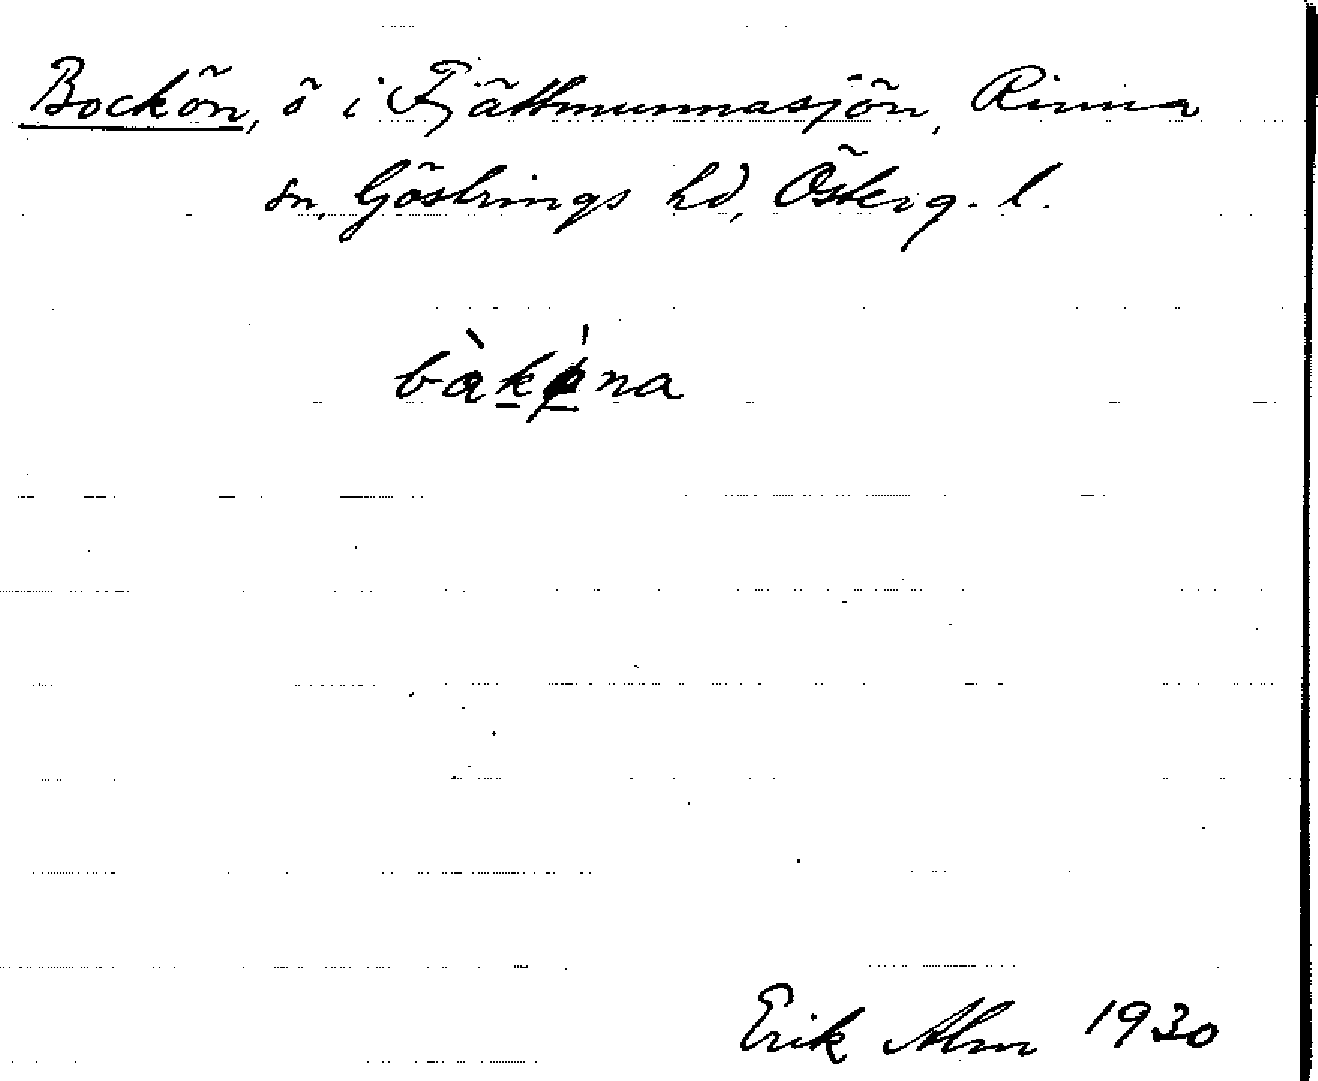 Bockön, ö i Fjättmunnasjön, Rinna
sn, Göstrings hd, Österg. l.
bàkǿna
Erik Alm 1930